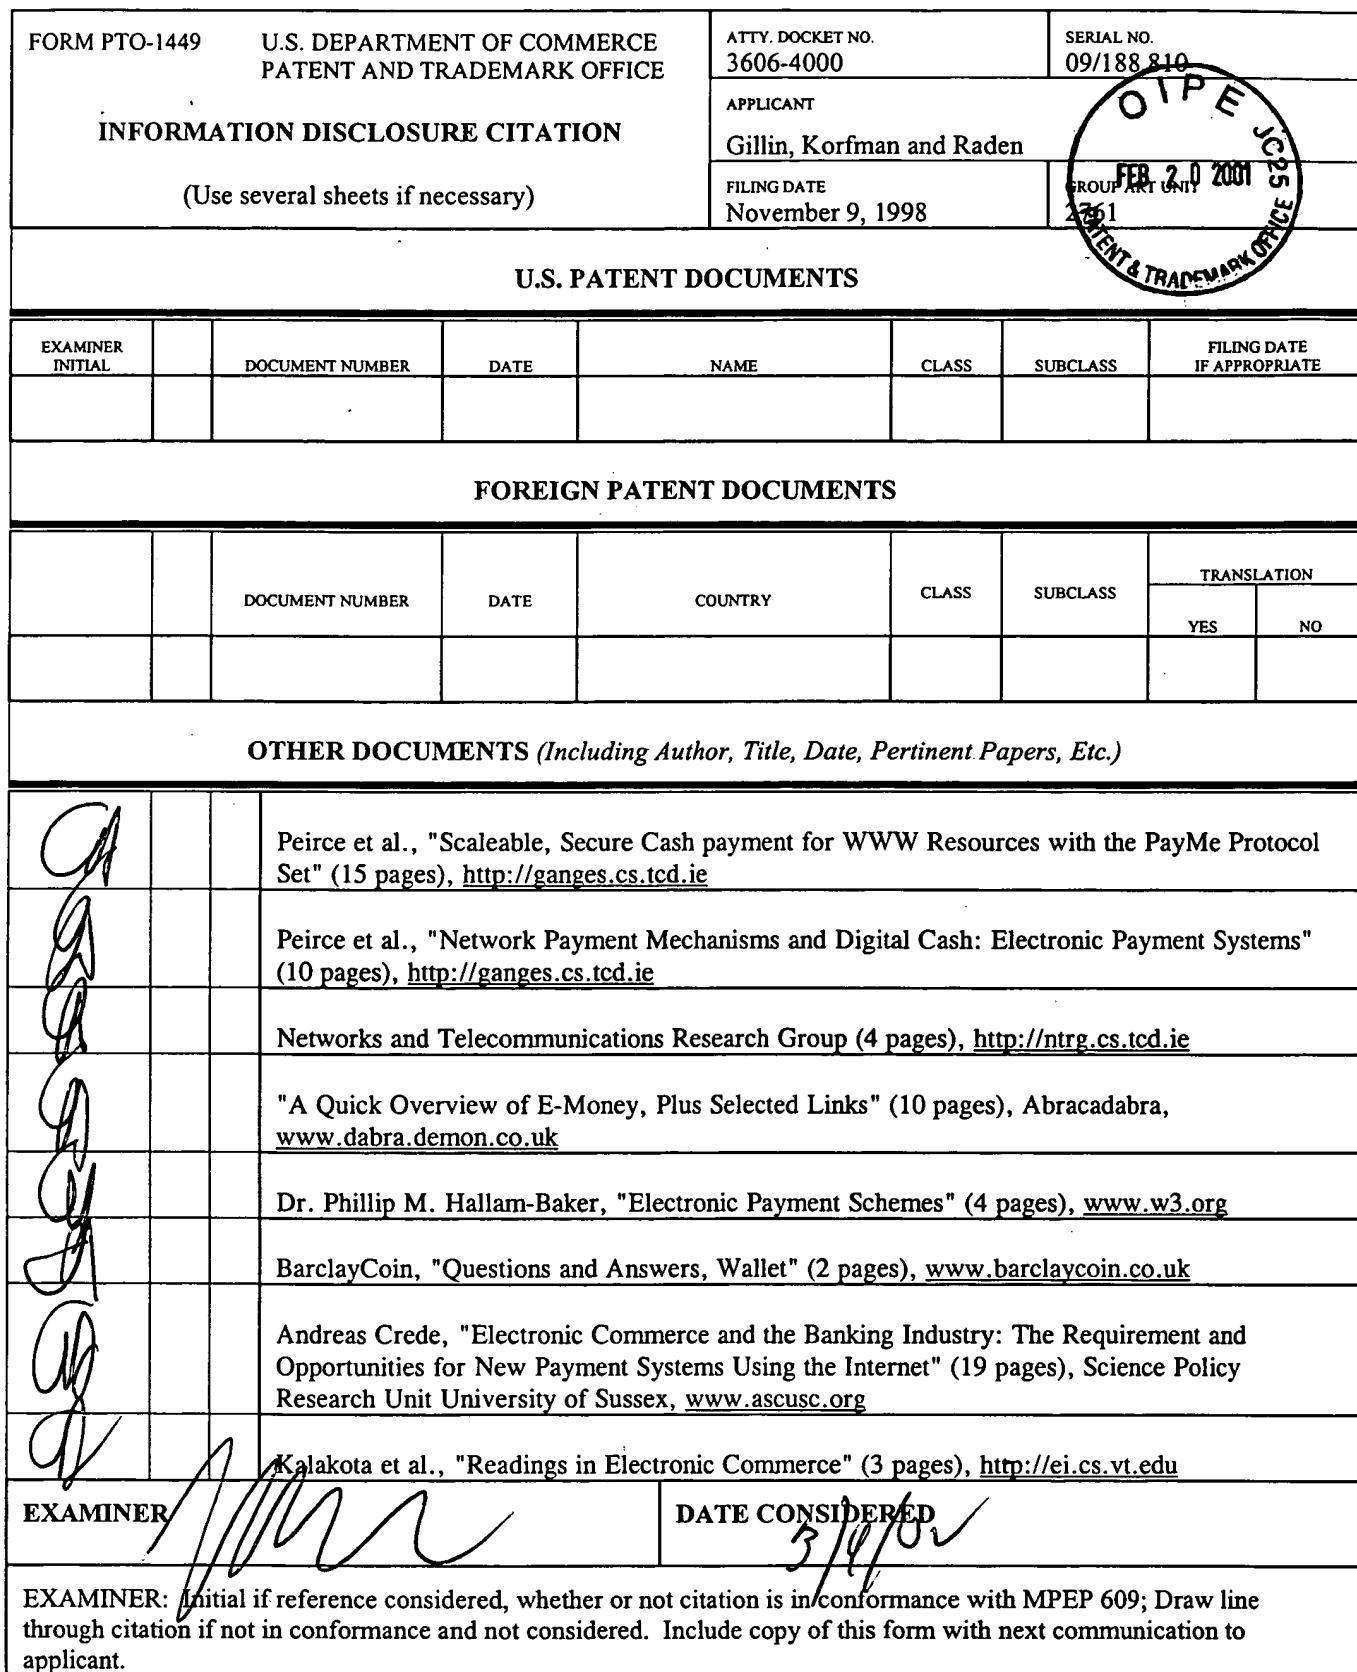 FORM PTO-1449
U.S. DEPARTMENT OF COMMERCE
PATENT AND TRADEMARK OFFICE
INFORMATION DISCLOSURE CITATION
(Use several sheets if necessary)
ATTY. DOCKET NO.
3606-4000
SERIAL NO.
09/188,810
APPLICANT
Gillin, Korfman and Raden
FILING DATE
November 9, 1998
GROUP ART UNIT
2761
OIPE JC25
FEB 20 2001
PATENT & TRADEMARK OFFICE
U.S. PATENT DOCUMENTS
EXAMINER
INITIAL
DOCUMENT NUMBER
DATE
NAME
CLASS
SUBCLASS
FILING DATE
IF APPROPRIATE
FOREIGN PATENT DOCUMENTS
DOCUMENT NUMBER
DATE
COUNTRY
CLASS
SUBCLASS
TRANSLATION
YES
NO
OTHER DOCUMENTS (Including Author, Title, Date, Pertinent Papers, Etc.)
Peirce et al., "Scaleable, Secure Cash payment for WWW Resources with the PayMe Protocol
Set" (15 pages), http://ganges.cs.tcd.ie
Peirce et al., "Network Payment Mechanisms and Digital Cash: Electronic Payment Systems"
(10 pages), http://ganges.cs.tcd.ie
Networks and Telecommunications Research Group (4 pages), http://ntrg.cs.tcd.ie
"A Quick Overview of E-Money, Plus Selected Links" (10 pages), Abracadabra,
www.dabra.demon.co.uk
Dr. Phillip M. Hallam-Baker, "Electronic Payment Schemes" (4 pages), www.w3.org
BarclayCoin, "Questions and Answers, Wallet" (2 pages), www.barclaycoin.co.uk
Andreas Crede, "Electronic Commerce and the Banking Industry: The Requirement and
Opportunities for New Payment Systems Using the Internet" (19 pages), Science Policy
Research Unit University of Sussex, www.ascusc.org
Kalakota et al., "Readings in Electronic Commerce" (3 pages), http://ei.cs.vt.edu
EXAMINER
DATE CONSIDERED
EXAMINER: Initial if reference considered, whether or not citation is in conformance with MPEP 609; Draw line
through citation if not in conformance and not considered. Include copy of this form with next communication to
applicant.